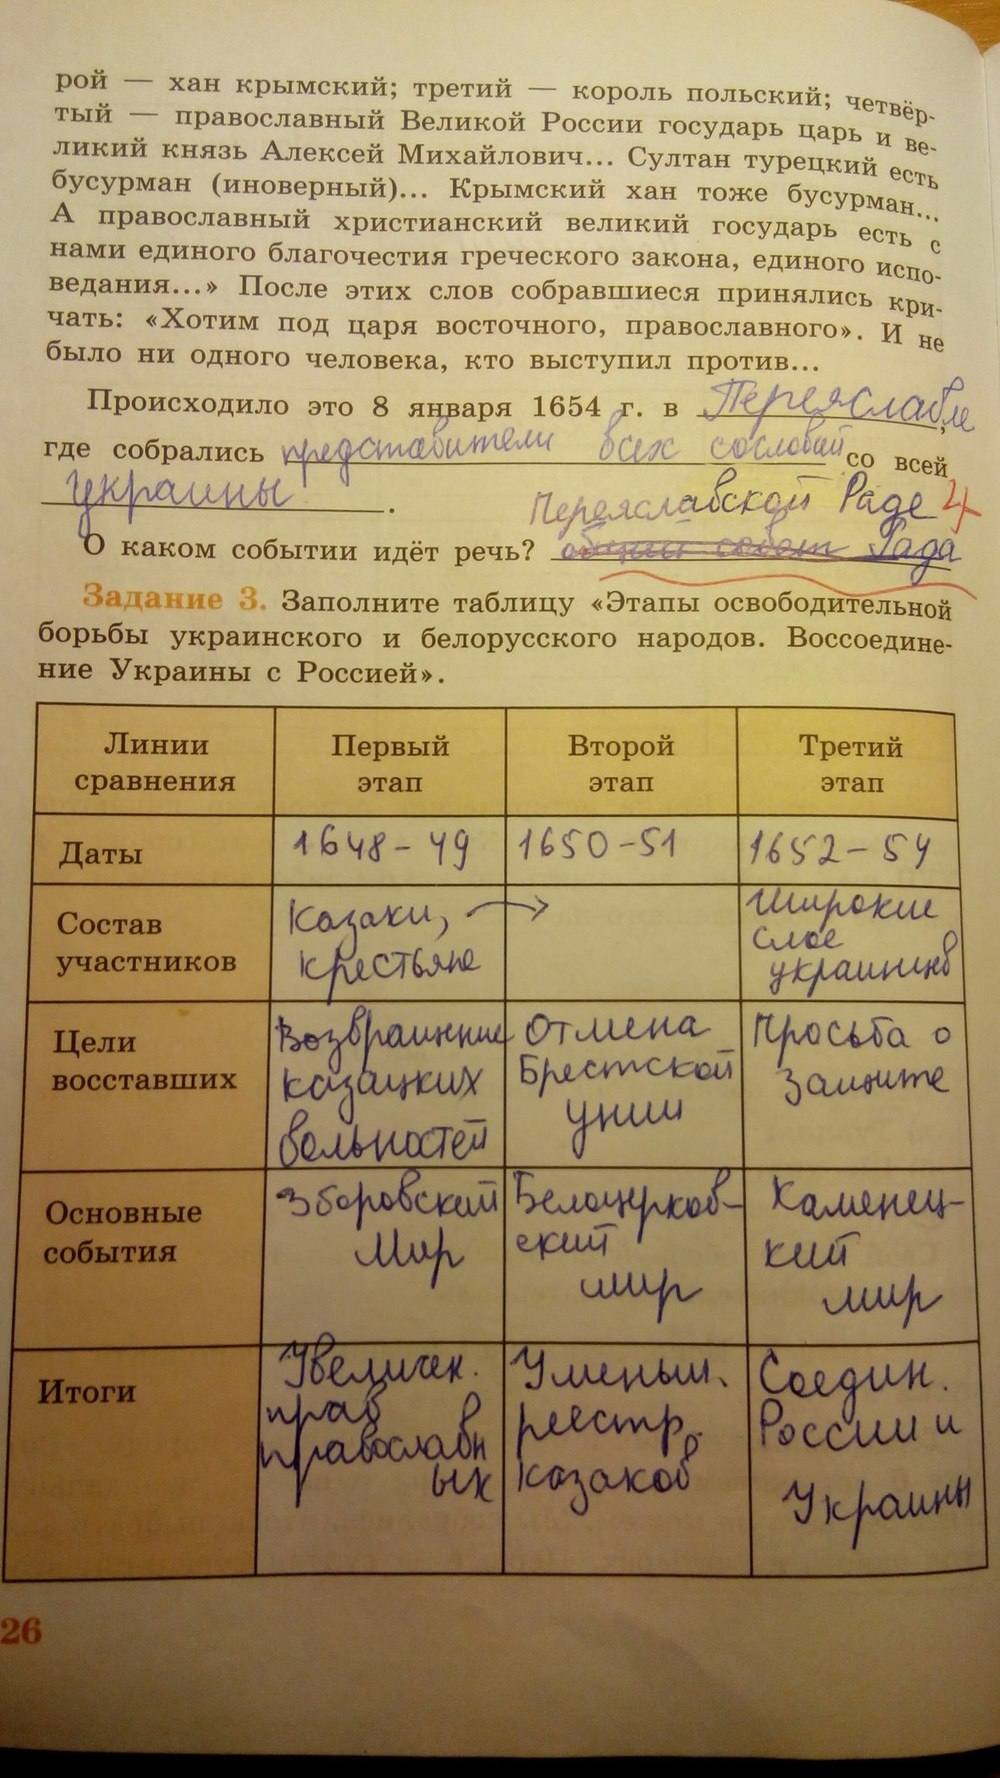 рой — хан крымский; третий — король польский; четвёр-
тый — православный Великой России государь царь и ве-
ликий князь Алексей Михайлович... Султан турецкий есть
бусурман (иноверный)... Крымский хан тоже бусурман...
А православный христианский великий государь есть с
нами единого благочестия греческого закона, единого испо-
ведания...» После этих слов собравшиеся принялись кри-
чать: «Хотим под царя восточного, православного». И не
было ни одного человека, кто выступил против...
Происходило это 8 января 1654 г. в Переяславле,
где собрались представители всех сословий со всей
Украины.
Переяславской Раде 4
О каком событии идёт речь? Рада
Задание 3. Заполните таблицу «Этапы освободительной
борьбы украинского и белорусского народов. Воссоедине-
ние Украины с Россией».
Линии сравнения
Первый этап
Второй этап
Третий этап
Даты
1648-49
1650-51
1652-54
Состав участников
Казаки, →
крестьяне
Широкие
слое
украинцев
Цели восставших
Возвращение
казацких
вольностей
Отмена
Брестской
унии
Просьба о
защите
Основные события
Зборовский
мир
Белоцерков-
ский
мир
Каменец-
кий
мир
Итоги
Увеличен.
прав
православн
ых
Уменьш.
реестр.
казаков
Соедин.
России и
Украины
26